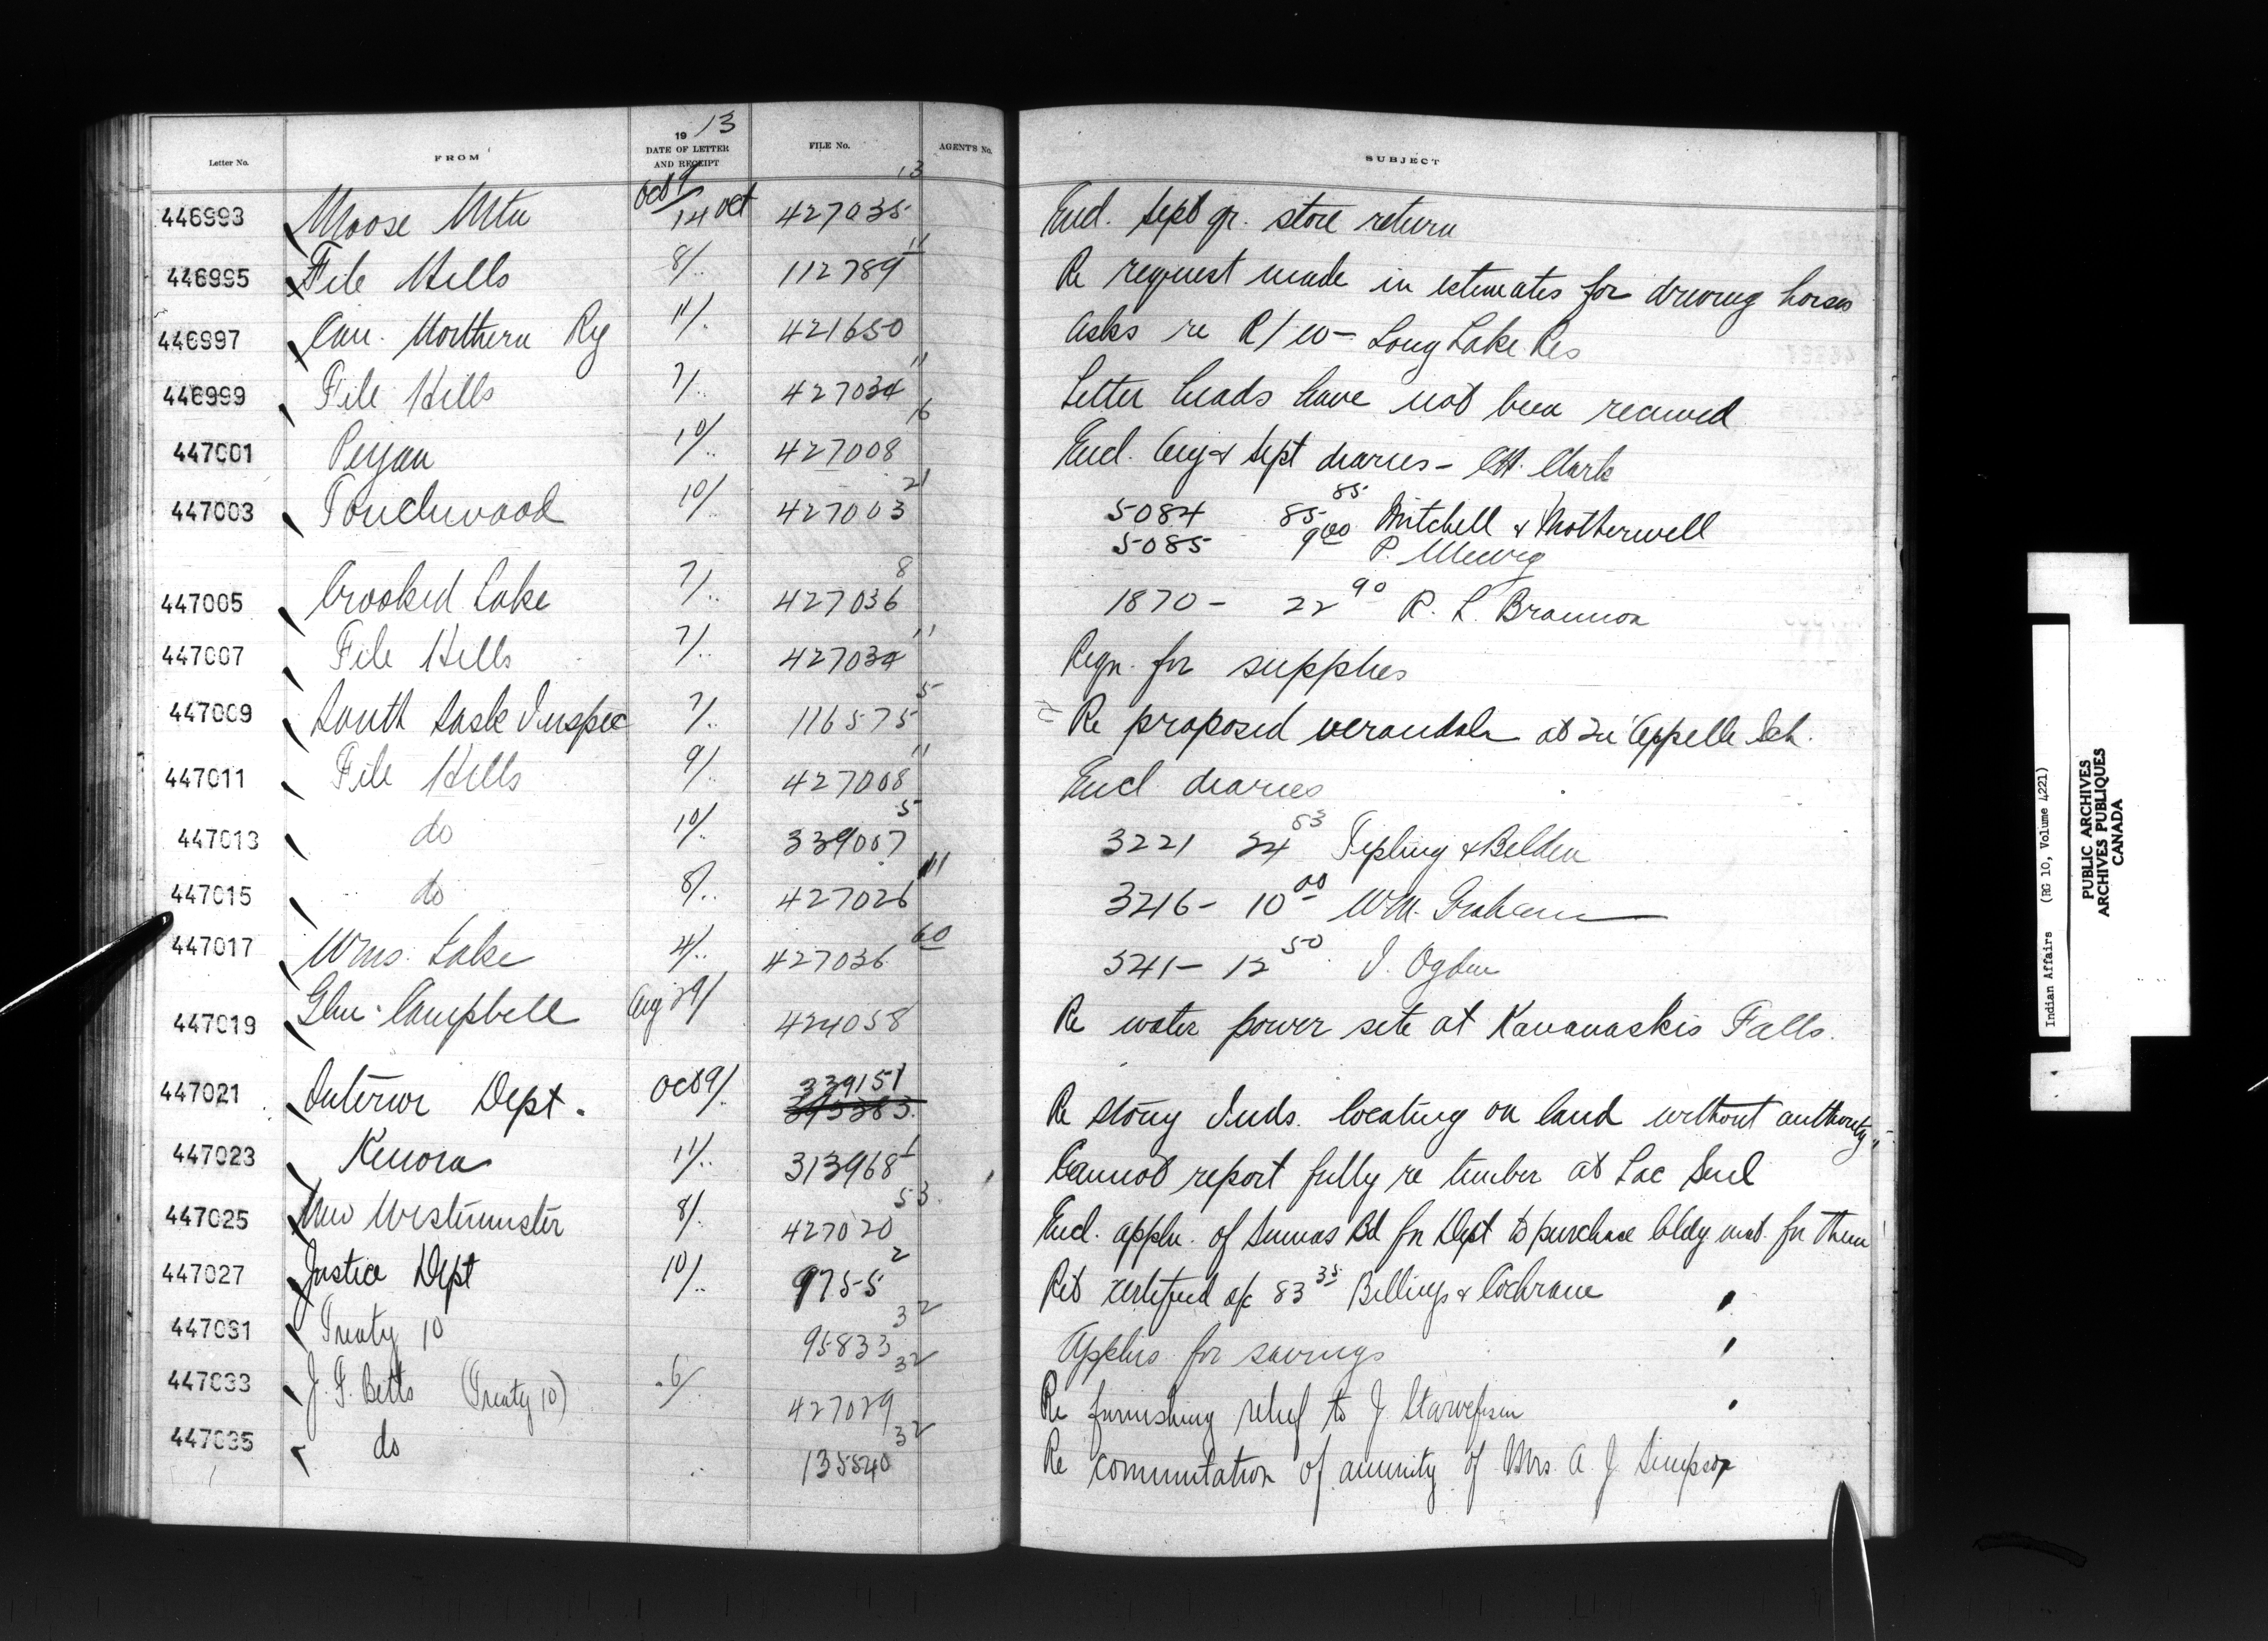 Letter No. FROM 19 13 DATE OF LETTER AND RECEIPT FILE No. AGENT'S No. SUBJECT
446993 Moose Mtn Oct 9/14 Oct 427035 13 Encl. Sept qr. store return
446995 File Hills 8/.. 112789 11 Re request made in estimates for driving horses
446997 Can. Northern Ry 11/. 421650 Asks re R/W - Long Lake Res
446999 File Hills 7/.. 427034 11 Letter heads have not been received
447001 Peigan 10/.. 427008 16 Encl. Aug & Sept diaries - Clark
447003 Touchwood 10/.. 427003 21 5084 85 85 Mitchell & Motherwell
5085 9 00 P.
447005 Crooked Lake 7/.. 427036 8 1870 - 22 90 R. L. Brannon
447007 File Hills 7/.. 427034 11 Reqn. for supplies
447009 South Sask Inspec 7/.. 116575 5 Re proposed verandah at Qu'Appelle Sch.
447011 File Hills 9/. 427008 11 Encl diaries
447013 do 10/. 339007 5 3221 24 53 Tipling & Belden
447015 do 8/.. 427026 11 3216 - 10 00 Wm. Graham
447017 Wms. Lake 4/.. 427036 60 541 - 12 50 I. Ogden
447019 Glen Campbell Aug 29/ 424058 Re water power site at Kananaskis Falls.
447021 Interior Dept. Oct 9/. 339151 Re Stony Inds. locating on land without authority
447023 Kenora 11/.. 313968 1 Cannot report fully re timber at Lac Seul
447025 New Westminster 8/. 427020 53 Encl. appln. of Sumas Bd for Dept to purchase bldg mat. for them
447027 Justice Dept 10/. 9755 2 Ret certified a/c 83 35 Billings & Cochrane
447031 Treaty 10 95833 32 Applies for savings
447033 J. F. Betts (Treaty 10) 6/ 427029 32 Re furnishing relief to J.
447035 do 135540 32 Re commutation of annuity of Mrs. A. J. Simpson
Indian Affairs (RG 10, Volume 4221)
PUBLIC ARCHIVES
ARCHIVES PUBLIQUES
CANADA